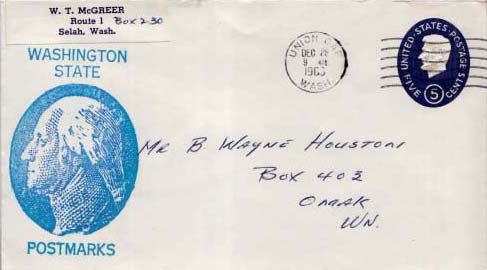 W. T. McGREER
Route 1 Box 230
Selah, Wash.
WASHINGTON
STATE
POSTMARKS
UNION GAP
DEC 28
9 AM
1963
WASH.
UNITED·STATES·POSTAGE
FIVE 5 CENTS
Mr B Wayne Houston
Box 402
Omak
Wn.